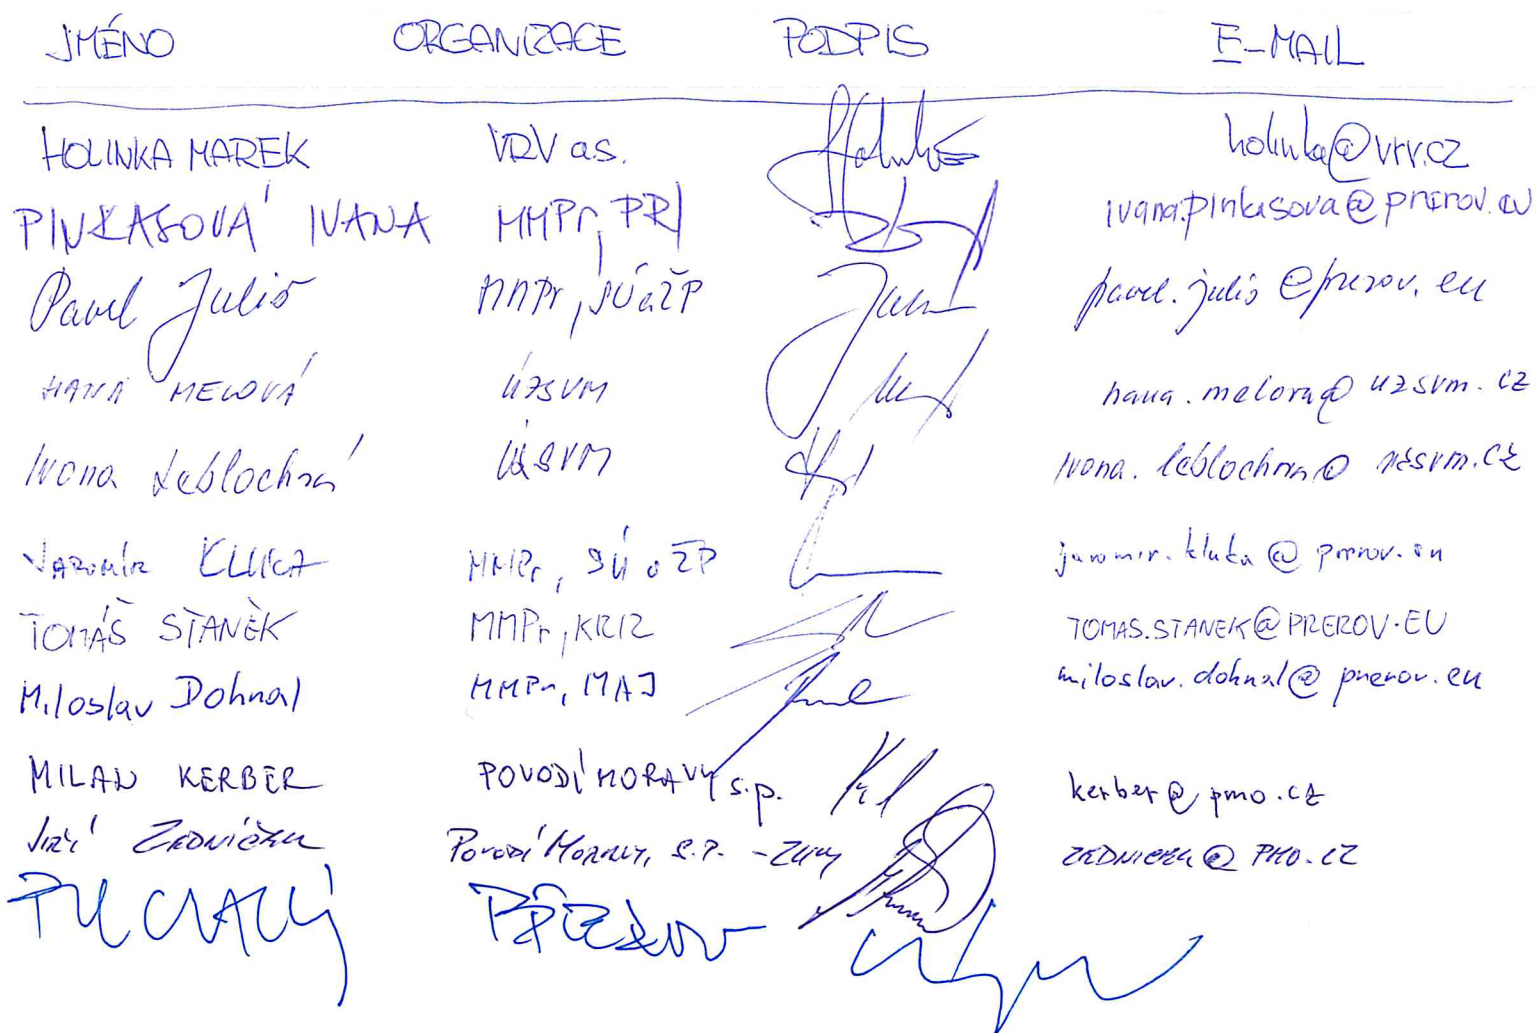 JMÉNO ORGANIZACE PODPIS E-MAIL
HOLINKA MAREK VRV a.s. holinka@vrv.cz
PINKASOVÁ IVANA MMPr, PRI ivana.pinkasova@prerov.eu
Pavel Juliš MMPr, SÚaŽP pavel.julis@prerov.eu
HANA MELOVÁ ÚZSVM hana.melova@uzsvm.cz
Ivona ÚZSVM
Jaromír KLUKA MMPr, SÚaŽP jaromir.kluka@prerov.eu
TOMÁŠ STANĚK MMPr, KRIZ TOMAS.STANEK@PREROV.EU
Miloslav Dohnal MMPr, MAJ miloslav.dohnal@prerov.eu
MILAN KERBER POVODÍ MORAVY s.p. kerber@pmo.cz
Jiří ZEDNÍČEK POVODÍ MORAVY, S.P. ZEDNICEK@PMO.CZ